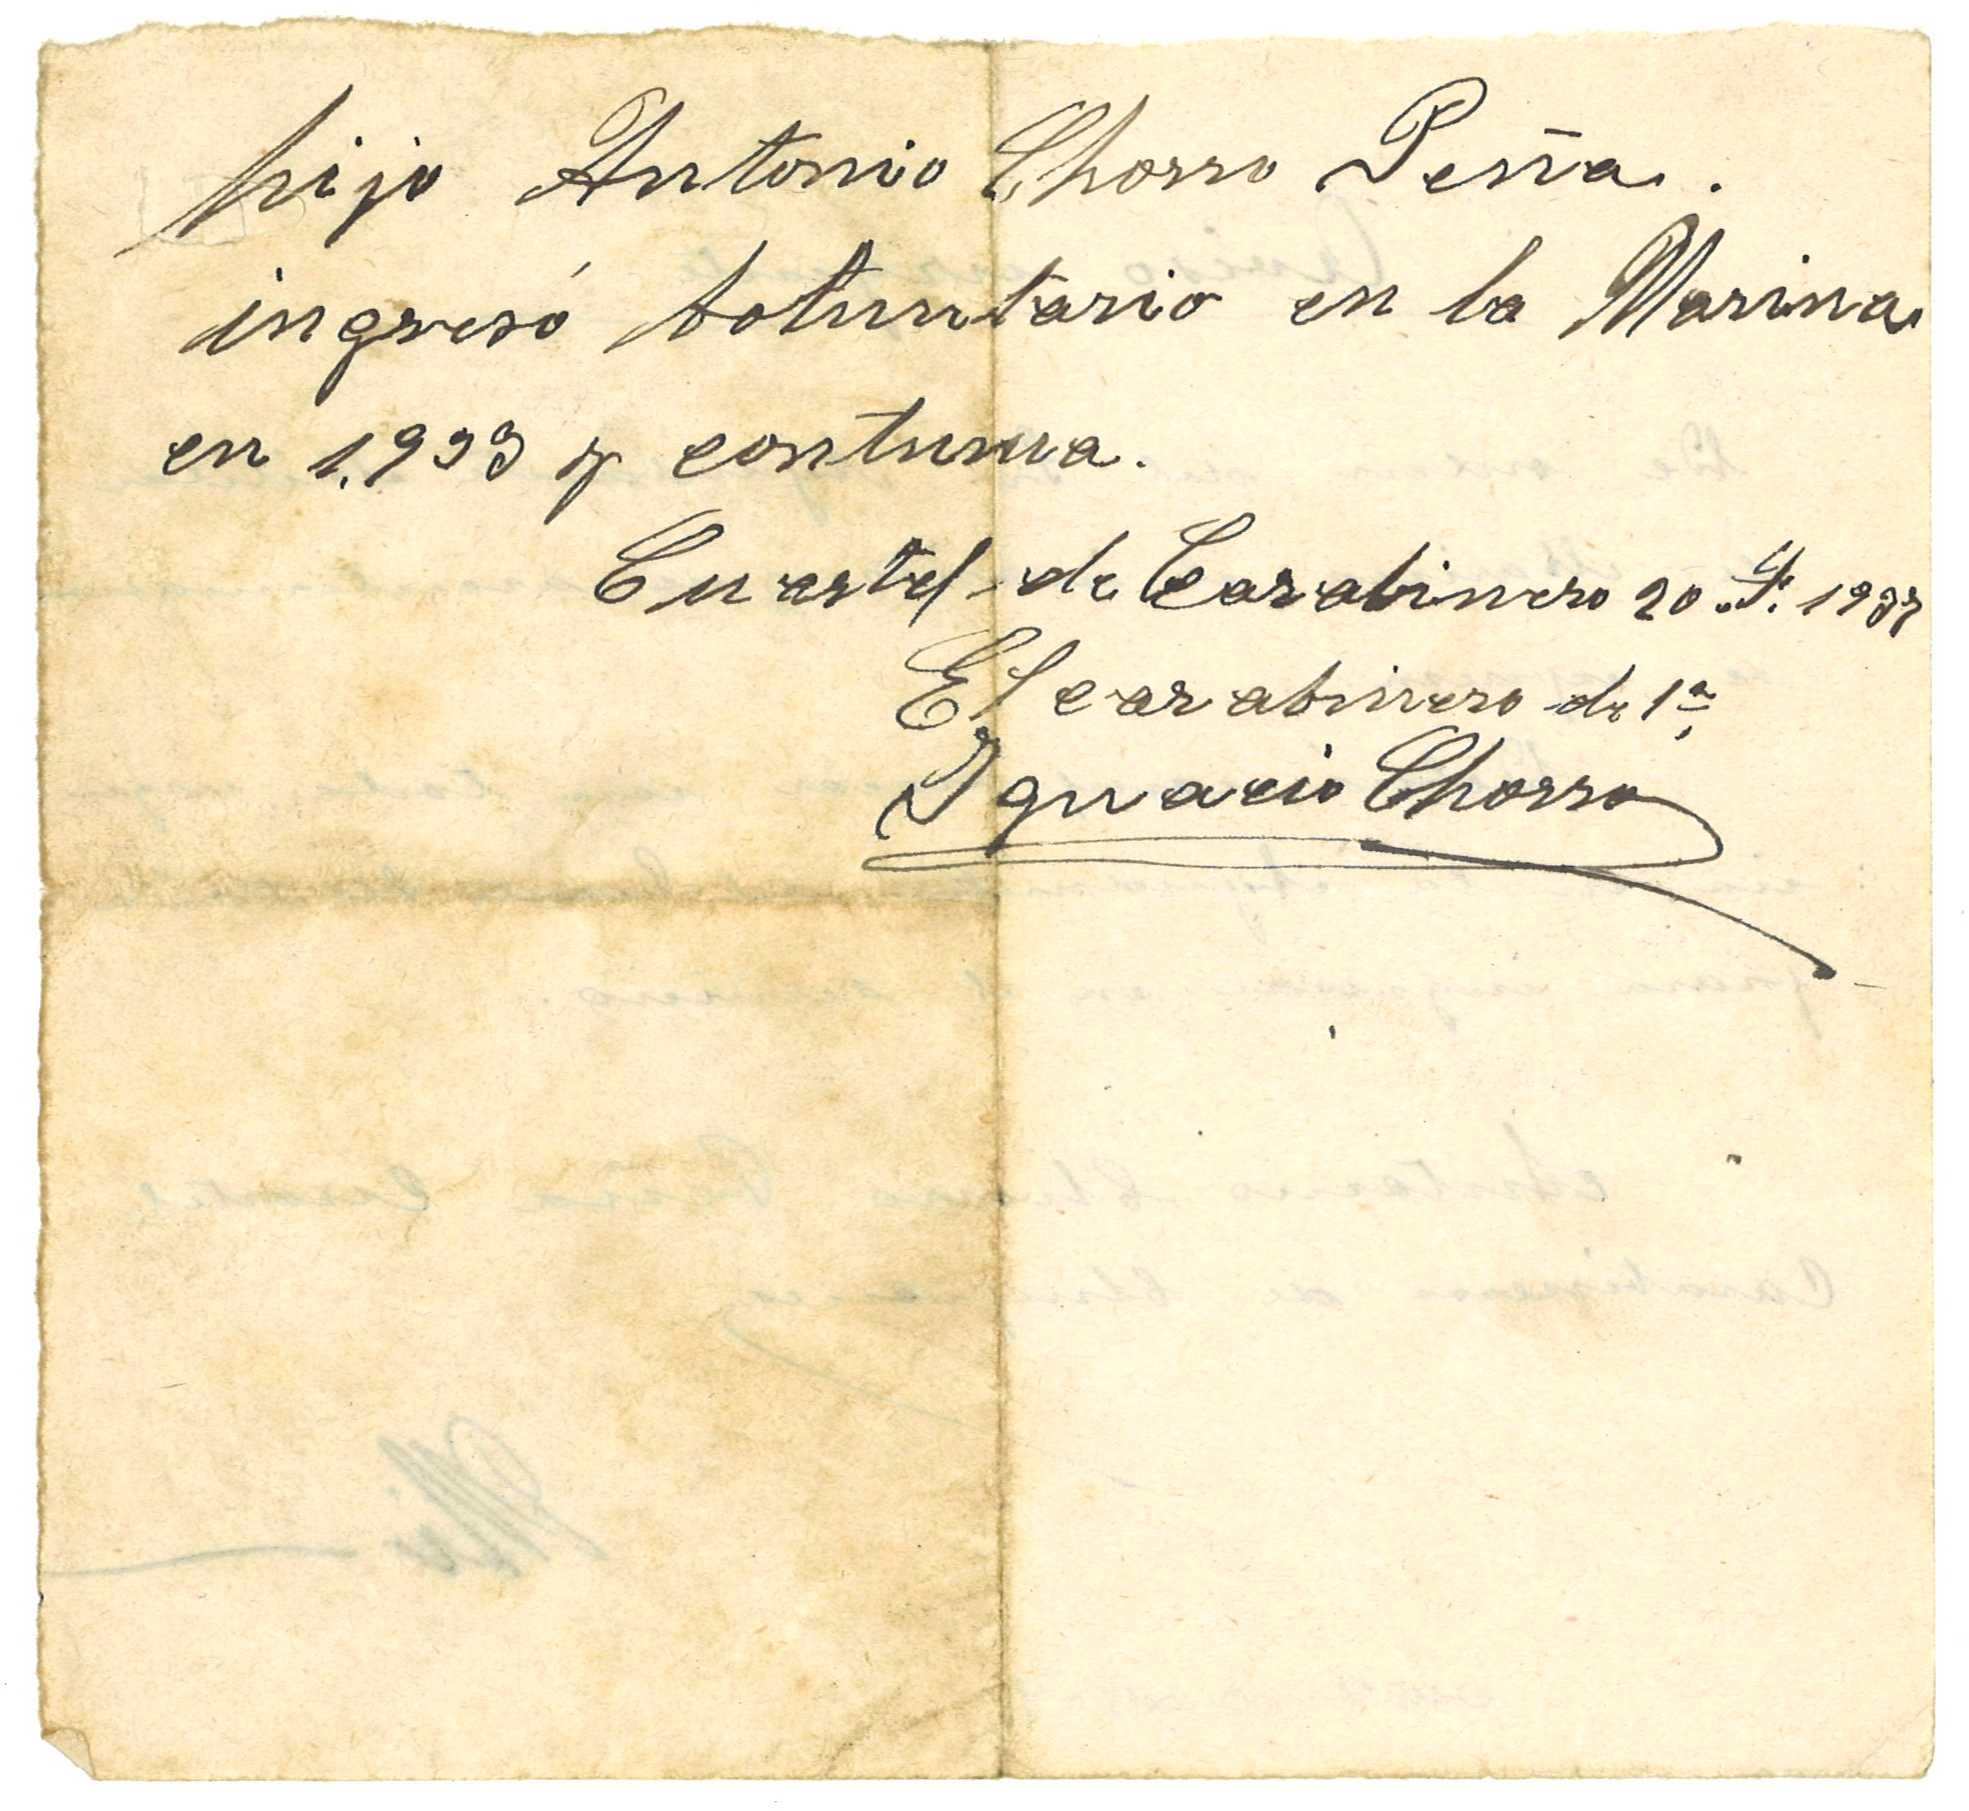 hijo Antonio Chorro Peña.
ingresó boluntario en la Marina
en 1.933 y contunua.
Cuartel de Carabinero 20 1937
El carabinero de 1ª
Ignacio Chorro